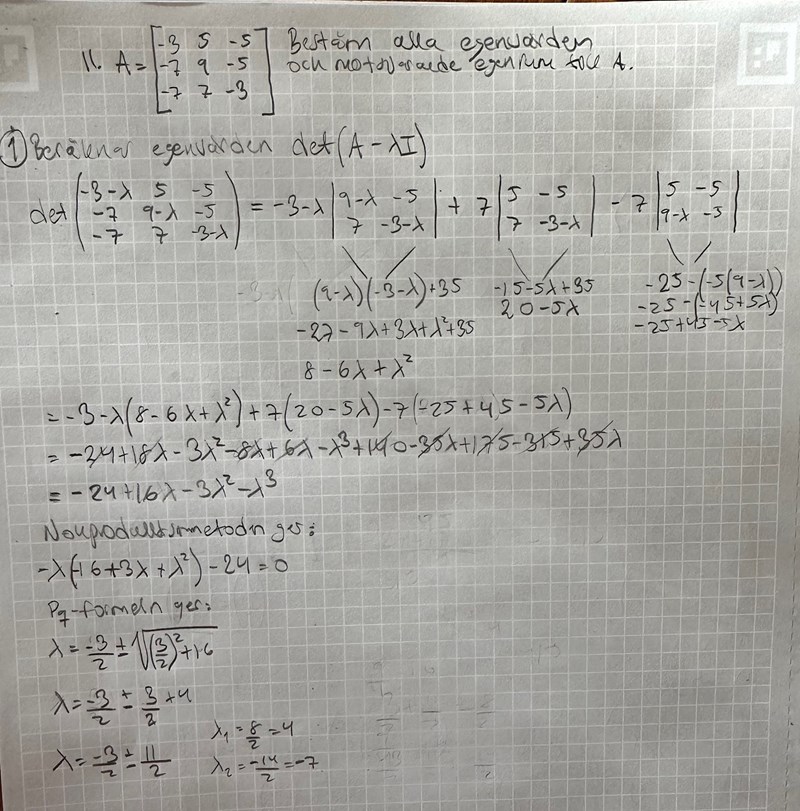 11. A = [-3 5 -5; -7 9 -5; -7 7 -3] Bestäm alla egenvärden
och motsvarande egenrum till A.
① Beräknar egenvärden det(A - λI)
det(-3-λ 5 -5; -7 9-λ -5; -7 7 -3-λ) = -3-λ |9-λ -5; 7 -3-λ| + 7 |5 -5; 7 -3-λ| - 7 |5 -5; 9-λ -5|
(9-λ)(-3-λ)+35 -15-5λ+35 -25-(-5(9-λ))
-27-9λ+3λ+λ²+35 20-5λ -25-(-45+5λ)
8-6λ+λ² -25+45-5λ
= -3-λ(8-6λ+λ²)+7(20-5λ)-7(-25+45-5λ)
= -24+18λ-3λ²-8λ+6λ-λ³+140-35λ+175-315+35λ
= -24+16λ-3λ²-λ³
Nollproduktsmetodn ger:
-λ(-16+3λ+λ²)-24=0
Pq-formeln ger:
λ = -3/2 ± √((3/2)²+16)
λ = -3/2 ± 3/2 + 4
λ = -3/2 ± 11/2 λ₁ = 8/2 = 4
λ₂ = -14/2 = -7